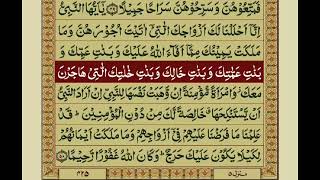 فَمَتِّعُوْهُنَّ وَسَرِّحُوْهُنَّ سَرَاحًا جَمِیْلًا ﴿۴۹﴾ یٰۤاَیُّهَا النَّبِیُّ
اِنَّاۤ اَحْلَلْنَا لَكَ اَزْوَاجَكَ الّٰتِیْۤ اٰتَیْتَ اُجُوْرَهُنَّ وَمَا
مَلَكَتْ یَمِیْنُكَ مِمَّاۤ اَفَآءَ اللّٰهُ عَلَیْكَ وَبَنٰتِ عَمِّكَ وَ
بَنٰتِ عَمّٰتِكَ وَبَنٰتِ خَالِكَ وَبَنٰتِ خٰلٰتِكَ الّٰتِیْ هَاجَرْنَ
مَعَكَ وَامْرَاَةً مُّؤْمِنَةً اِنْ وَّهَبَتْ نَفْسَهَا لِلنَّبِیِّ اِنْ اَرَادَ النَّبِیُّ
اَنْ یَّسْتَنْكِحَهَا خَالِصَةً لَّكَ مِنْ دُوْنِ الْمُؤْمِنِیْنَ قَدْ
عَلِمْنَا مَا فَرَضْنَا عَلَیْهِمْ فِیْۤ اَزْوَاجِهِمْ وَمَا مَلَكَتْ اَیْمَانُهُمْ
لِكَیْلَا یَكُوْنَ عَلَیْكَ حَرَجٌ وَكَانَ اللّٰهُ غَفُوْرًا رَّحِیْمًا ﴿۵۰﴾
منزل ۵